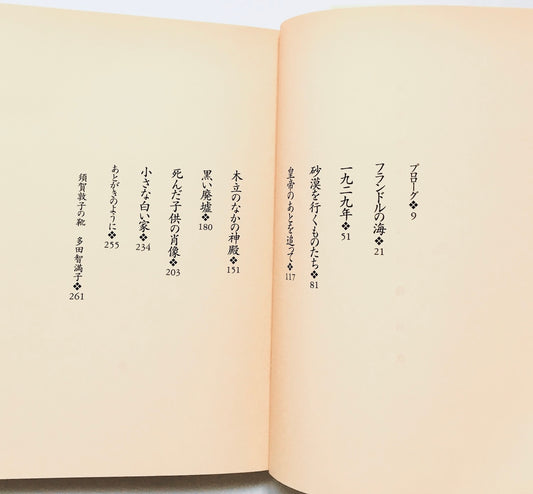 プロローグ❖9
フランドルの海❖21
一九二九年❖51
砂漠を行くものたち❖81
皇帝のあとを追って❖117
木立のなかの神殿❖151
黒い廃墟❖180
死んだ子供の肖像❖203
小さな白い家❖234
あとがきのように❖255
須賀敦子の靴 多田智満子❖261